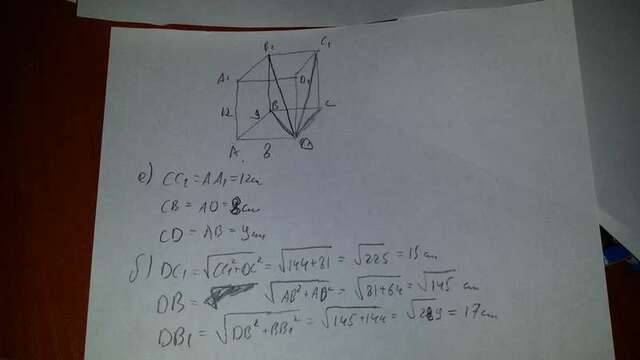 B₁ C₁
A₁ D₁
12 9 B C
A 8 D
a) CC₁ = AA₁ = 12 см
CB = AD = 8 см
CD = AB = 9 см
б) DC₁ = √(CC₁² + DC²) = √(144+81) = √225 = 15 см
DB = √(AD² + AB²) = √(81+64) = √145 см
DB₁ = √(DB² + BB₁²) = √(145+144) = √289 = 17 см